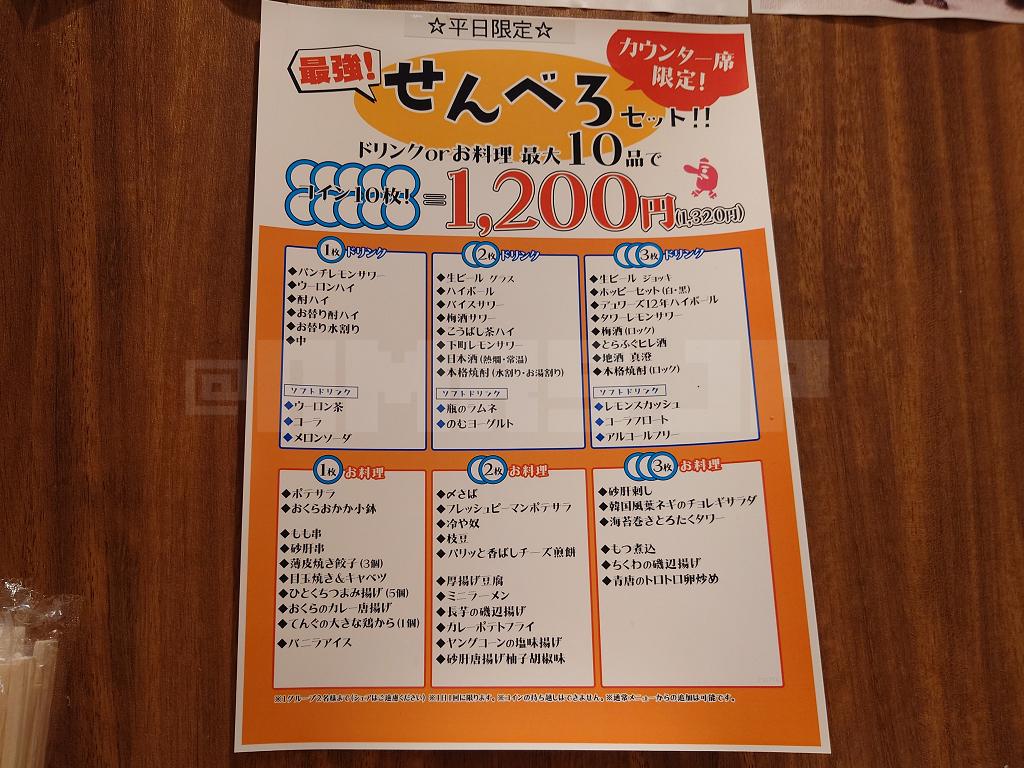 ☆平日限定☆
最強!
カウンター席
限定!
せんべろ
セット!!
ドリンクorお料理 最大10品で
コイン10枚!
=1,200円(1,320円)
1枚 ドリンク
◆パンチレモンサワー
◆ウーロンハイ
◆酎ハイ
◆お替り酎ハイ
◆お替り水割り
◆中
ソフトドリンク
◆ウーロン茶
◆コーラ
◆メロンソーダ
2枚 ドリンク
◆生ビール グラス
◆ハイボール
◆バイスサワー
◆梅酒サワー
◆こうばし茶ハイ
◆下町レモンサワー
◆日本酒(熱燗・常温)
◆本格焼酎(水割り・お湯割り)
ソフトドリンク
◆瓶のラムネ
◆のむヨーグルト
3枚 ドリンク
◆生ビール ジョッキ
◆ホッピーセット(白・黒)
◆デュワーズ12年ハイボール
◆タワーレモンサワー
◆梅酒(ロック)
◆とらふぐヒレ酒
◆地酒 真澄
◆本格焼酎(ロック)
ソフトドリンク
◆レモンスカッシュ
◆コーラフロート
◆アルコールフリー
1枚 お料理
◆ポテサラ
◆おくらおかか小鉢
◆もも串
◆砂肝串
◆薄皮焼き餃子(3個)
◆目玉焼き&キャベツ
◆ひとくちつまみ揚げ(5個)
◆おくらのカレー唐揚げ
◆てんぐの大きな鶏から(1個)
◆バニラアイス
2枚 お料理
◆〆さば
◆フレッシュピーマンポテサラ
◆冷や奴
◆枝豆
◆パリッと香ばしチーズ煎餅
◆厚揚げ豆腐
◆ミニラーメン
◆長芋の磯辺揚げ
◆カレーポテトフライ
◆ヤングコーンの塩味揚げ
◆砂肝唐揚げ柚子胡椒味
3枚 お料理
◆砂肝刺し
◆韓国風葉ネギのチョレギサラダ
◆海苔巻きとろたくタワー
◆もつ煮込
◆ちくわの磯辺揚げ
◆青唐のトロトロ卵炒め
※1グループ2名様まで(シェアはご遠慮ください) ※1日1回に限ります。※コインの持ち越しはできません。※通常メニューからの追加は可能です。